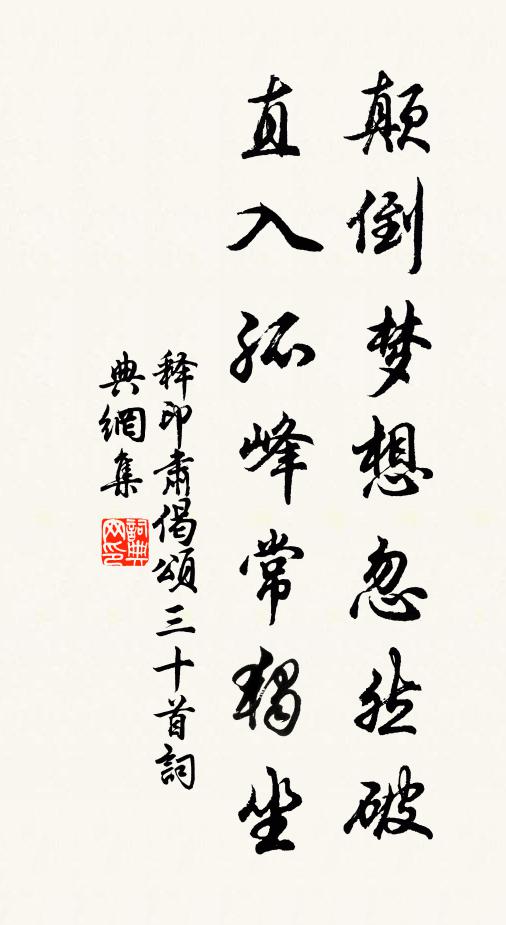 颠倒梦想忽然破
直入孤峰常独坐
释印肃偈颂三十首詞
典網集
詞典网印